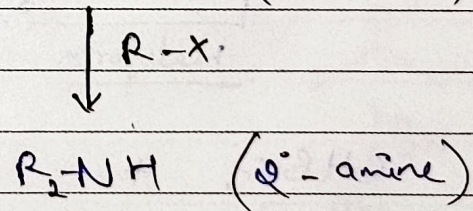 R-X.
R₂-NH (2°-amine)